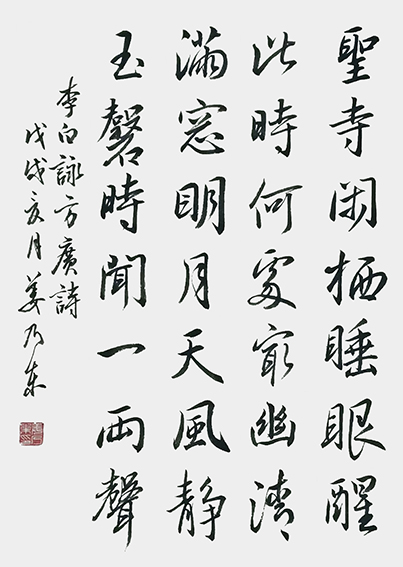 聖寺閑栖睡眼醒
此時何處最幽清
滿窓明月天風靜
玉磬時聞一兩聲
李白詠方廣詩
戊戌亥月姜乃東